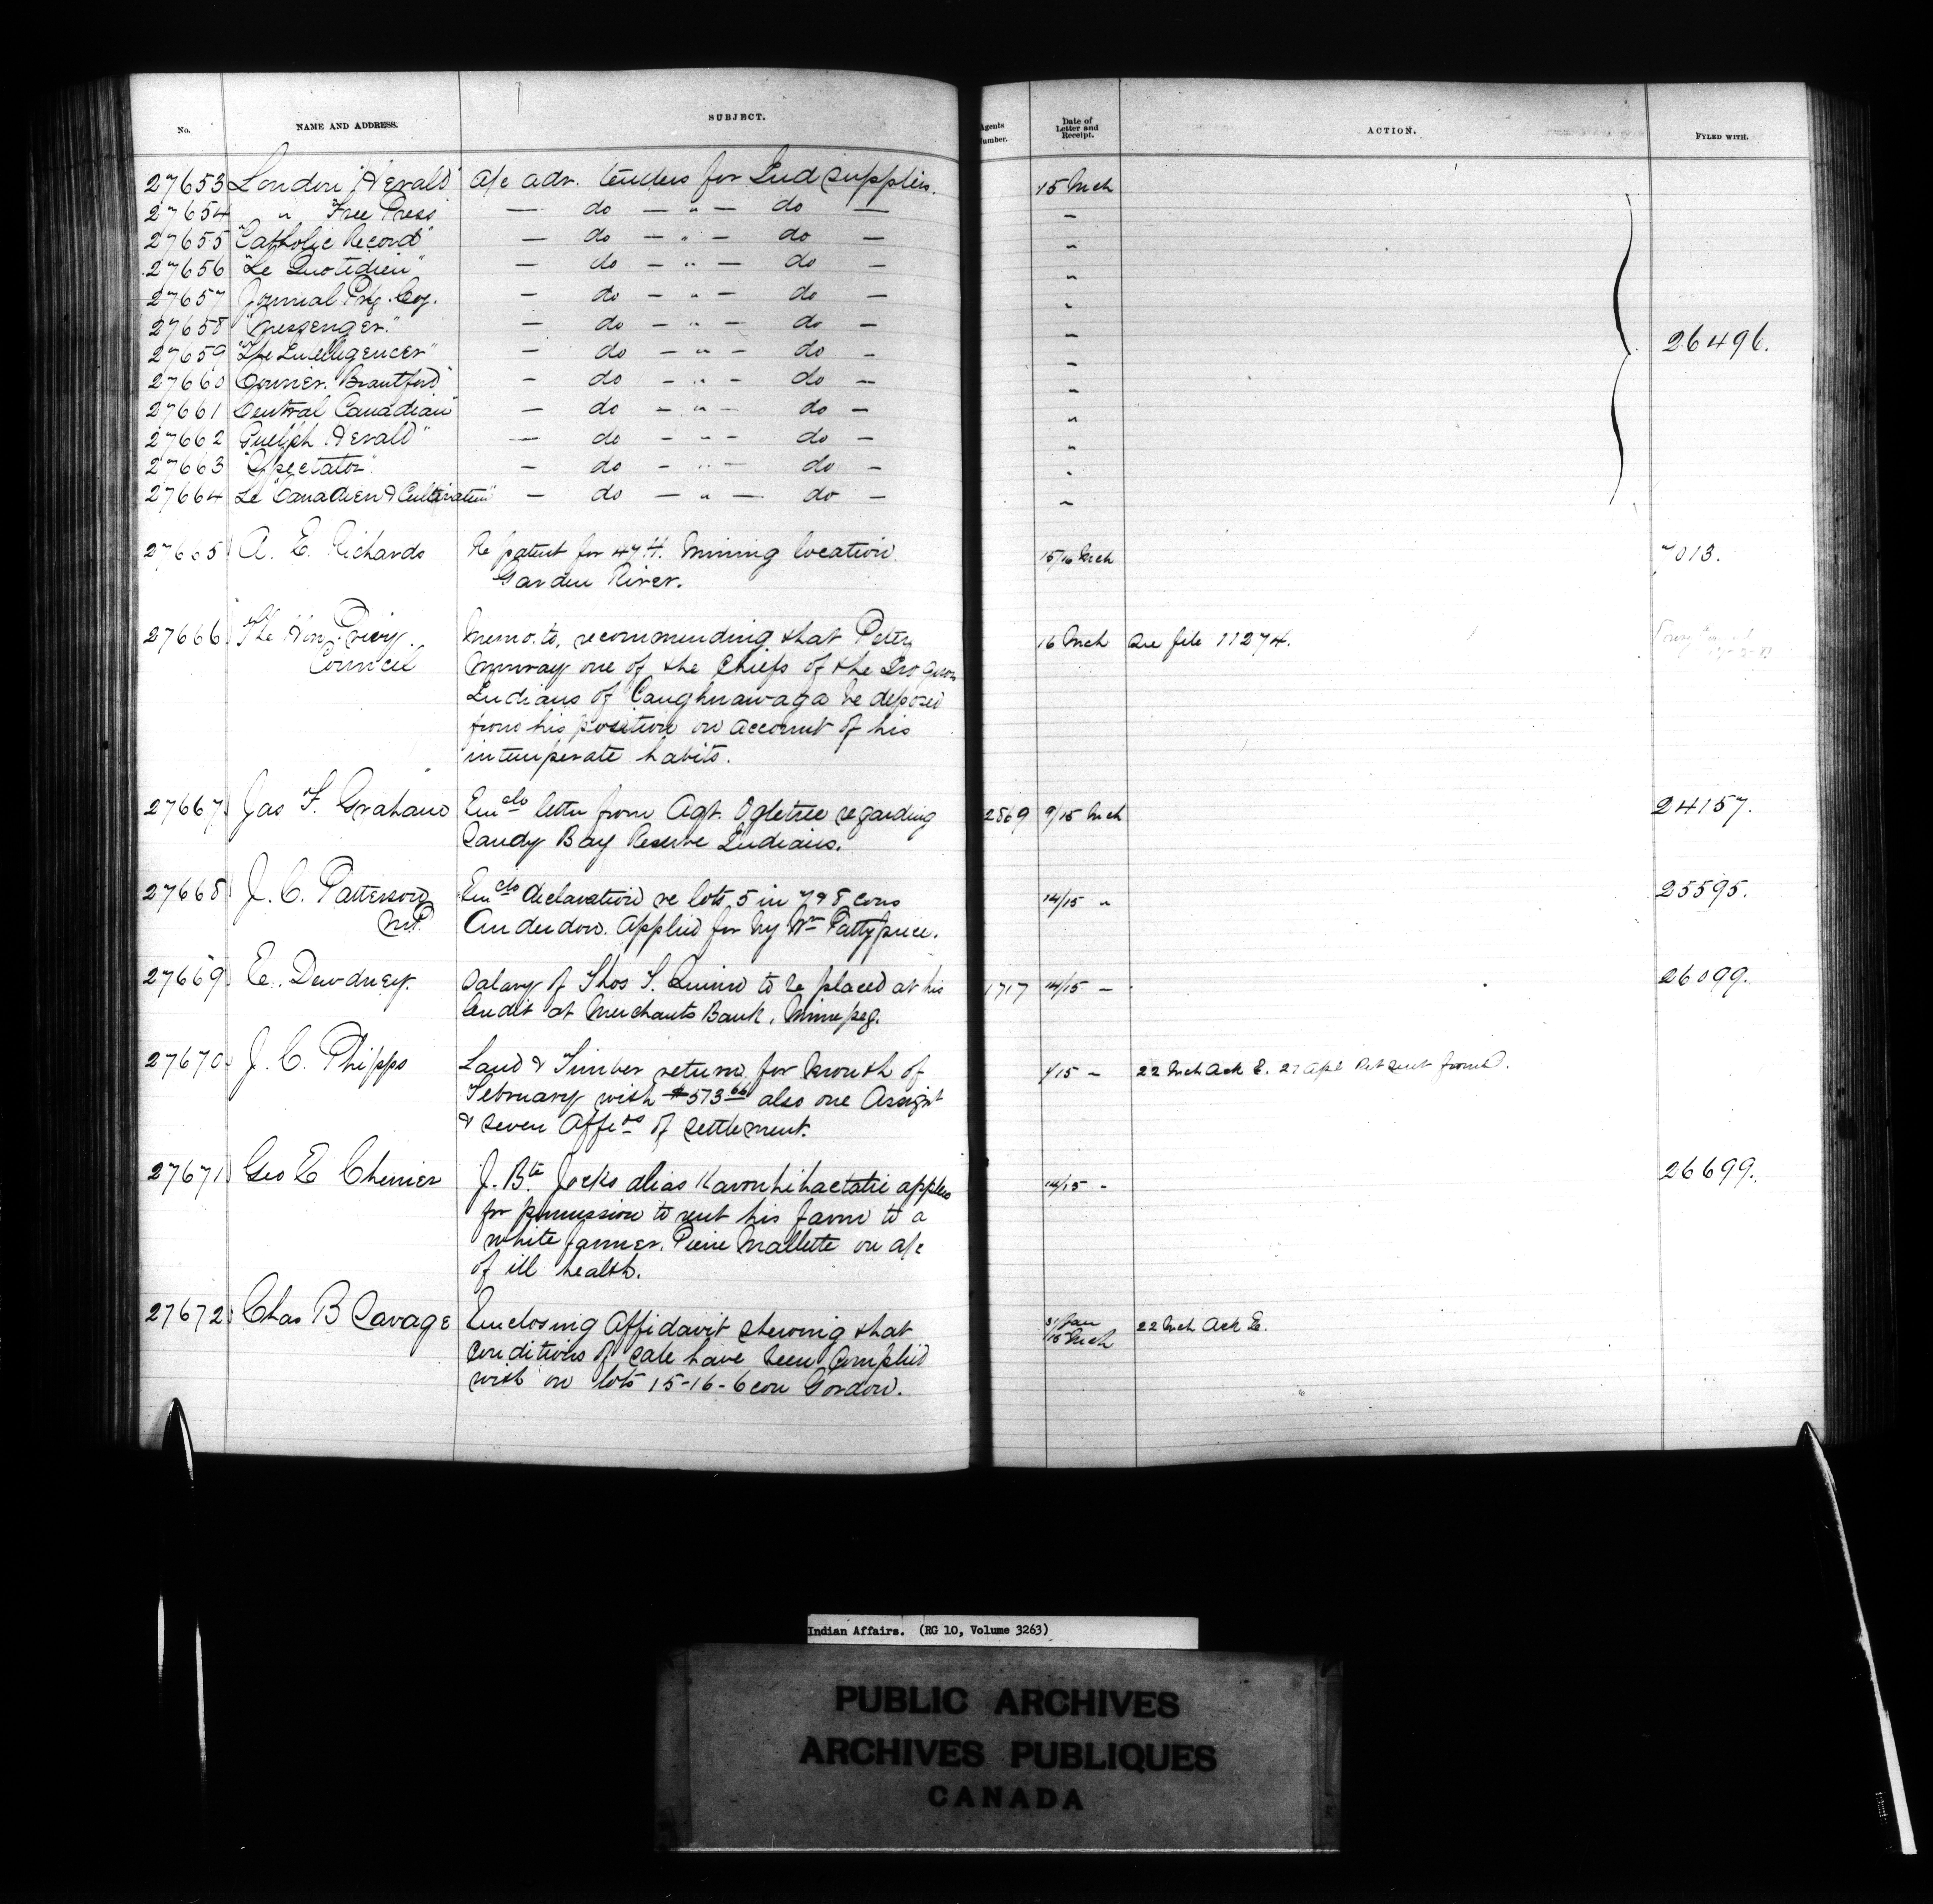 No. NAME AND ADDRESS. SUBJECT. Agents Number. Date of Letter and Receipt. ACTION. FYLED WITH.
27653 London "Herald" a/c adv. tenders for Ind supplies. 15 Mch
27654 " Free Press" — do — " — do — "
27655 "Catholic Record" — do — " — do — "
27656 "Le Quotidien" — do — " — do — "
27657 Journal Ptg. Coy. — do — " — do — "
27658 "Messenger." — do — " — do — "
27659 "The Intelligencer" — do — " — do — " 26496.
27660 Courier. Brantford" — do — " — do — "
27661 Central Canadian" — do — " — do — "
27662 Guelph Herald" — do — " — do — "
27663 "Spectator" — do — " — do — "
27664 Le "Canadien & Cultivateur" — do — " — do — "
27665 A. E. Richards Re patent for 47 H. Mining location 15/16 Mch 7013.
Garden River.
27666 The Hon Privy Memo. to, recommending that Peter 16 Mch See file 11274.
Council Conway one of the Chiefs of the Iroquois
Indians of Caughnawaga be deposed
from his position on account of his
intemperate habits.
27667 Jas F. Graham Enclo letter from Agt. Ogletree regarding 2869 9/15 Mch 24157.
Sandy Bay Reserve Indians.
27668 J. C. Patterson Enclo declaration re lots 5 in 7 & 8 cons 14/15 " 25595.
M.P. Anderdon. Applied for by Wm Pattypiece.
27669 E. Dewdney. Salary of Thos T. Quinn to be placed at his 1717 14/15 — 26099.
credit at Merchants Bank, Winnipeg.
27670 J. C. Phipps Land & Timber return for month of /15 — 22 Mch Ack E. 21 Apl Ret sent
February with $573.66 also one Assignt
& seven Affids of settlement.
27671 Geo E Cherrier J. Bte Jocks alias applies 14/15 - 26699.
for permission to rent his farm to a
white farmer. Pierre Mallette on a/c
of ill health.
27672 Chas B Savage Enclosing Affidavit shewing that 31 Jan 22 Mch Ack E.
conditions of sale have been Complied /15 Mch
with on lots 15-16-6 con Gordon.
Indian Affairs. (RG 10, Volume 3263)
PUBLIC ARCHIVES
ARCHIVES PUBLIQUES
CANADA